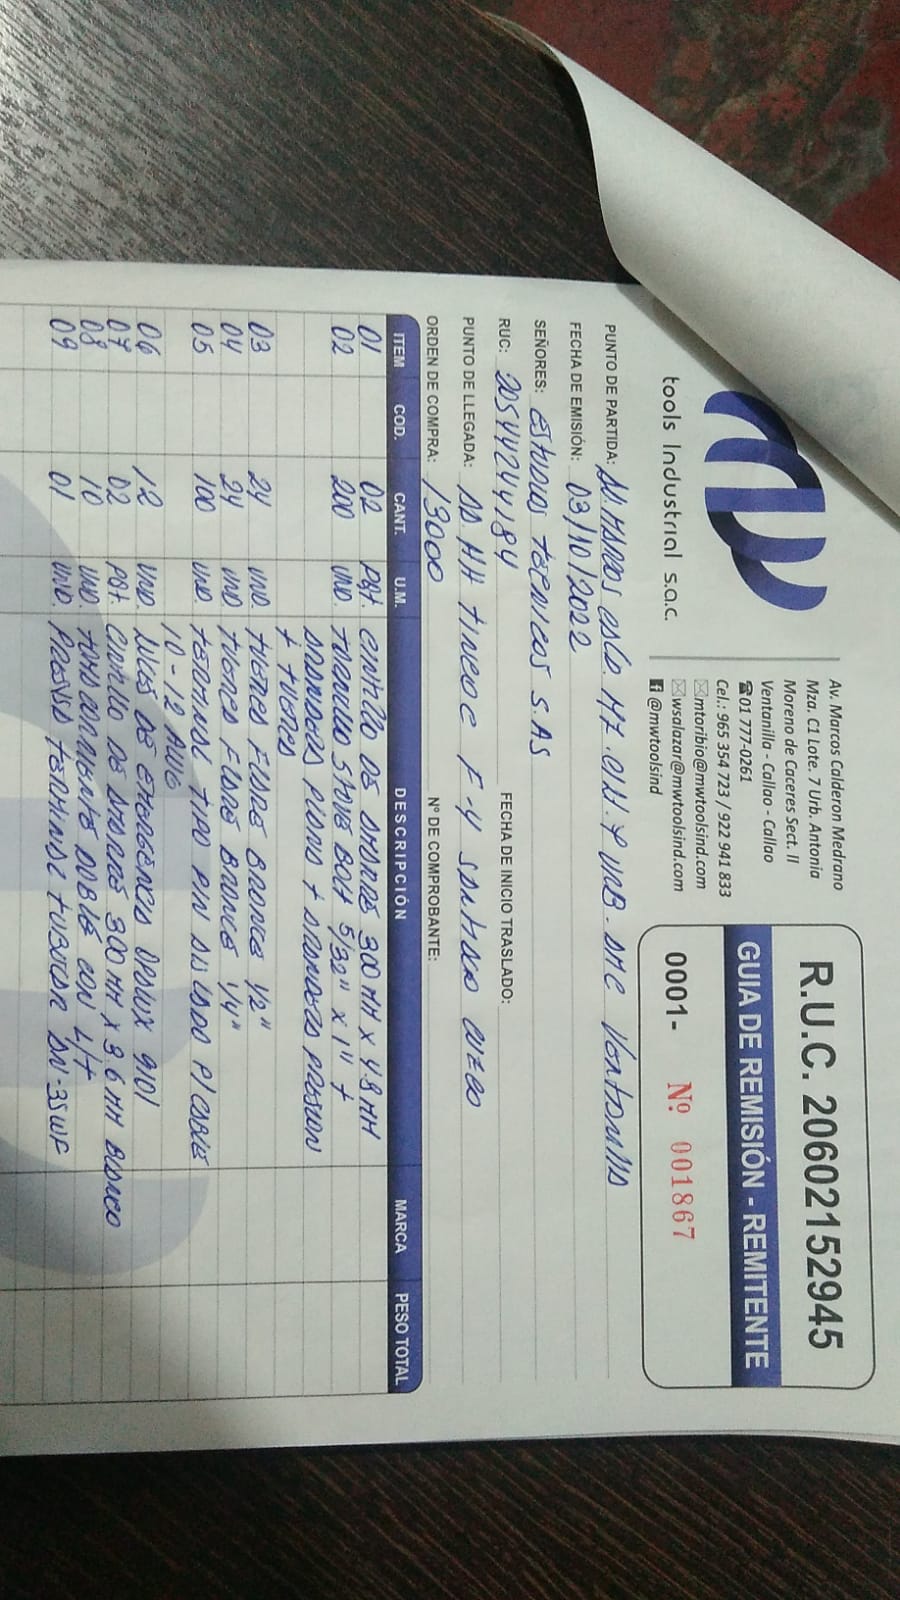 tools Industrial s.a.c.
Av. Marcos Calderon Medrano
Mza. C1 Lote. 7 Urb. Antonia
Moreno de Caceres Sect. II
Ventanilla - Callao - Callao
01 777-0261
Cel.: 965 354 723 / 922 941 833
mtoribio@mwtoolsind.com
wsalazar@mwtoolsind.com
@mwtoolsind
R.U.C. 20602152945
GUIA DE REMISIÓN - REMITENTE
0001- Nº 001867
PUNTO DE PARTIDA:
FECHA DE EMISIÓN: 03/10/2022
SEÑORES: Estudios Tecnicos S.AS
FECHA DE INICIO TRASLADO:
RUC: 20544244184
PUNTO DE LLEGADA: AA HH Tineo C F-4 Santiago Cuzco
ORDEN DE COMPRA: 13000
Nº DE COMPROBANTE:
ITEM COD. CANT. U.M. DESCRIPCIÓN MARCA PESO TOTAL
01 02 Pqt. Cintillo de amarre 300 MM x 4.8 MM
02 200 und. Tornillo Stove Bolt 5/32" x 1" +
arandelas plana + arandelas presion
+ tuercas
03 24 und. 1/2"
04 24 und. 1/4"
05 100 und. Terminal tipo pin aislado p/cable
10-12 AWG
06 12 und. Luces de emergencia 9101
07 02 Pqt. Cintillo de amarre 300 MM x 3.6 MM blanco
08 10 und. Tomacorriente doble con L/T
09 01 und. terminal tubular